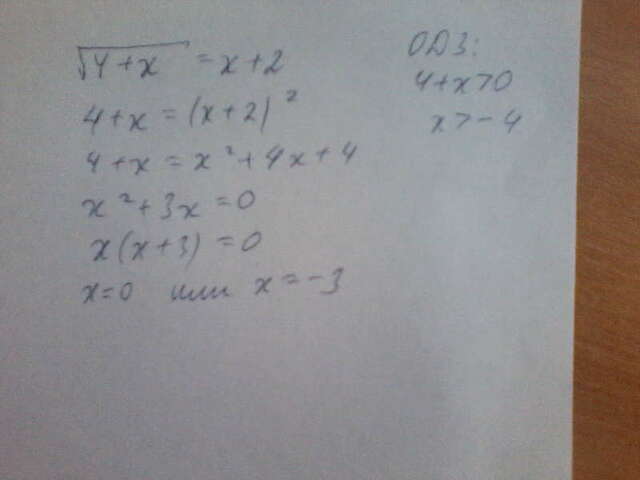 √4+x = x+2
4+x = (x+2)²
4+x = x²+4x+4
x²+3x=0
x(x+3)=0
x=0 или x=-3
ОДЗ:
4+x>0
x>-4